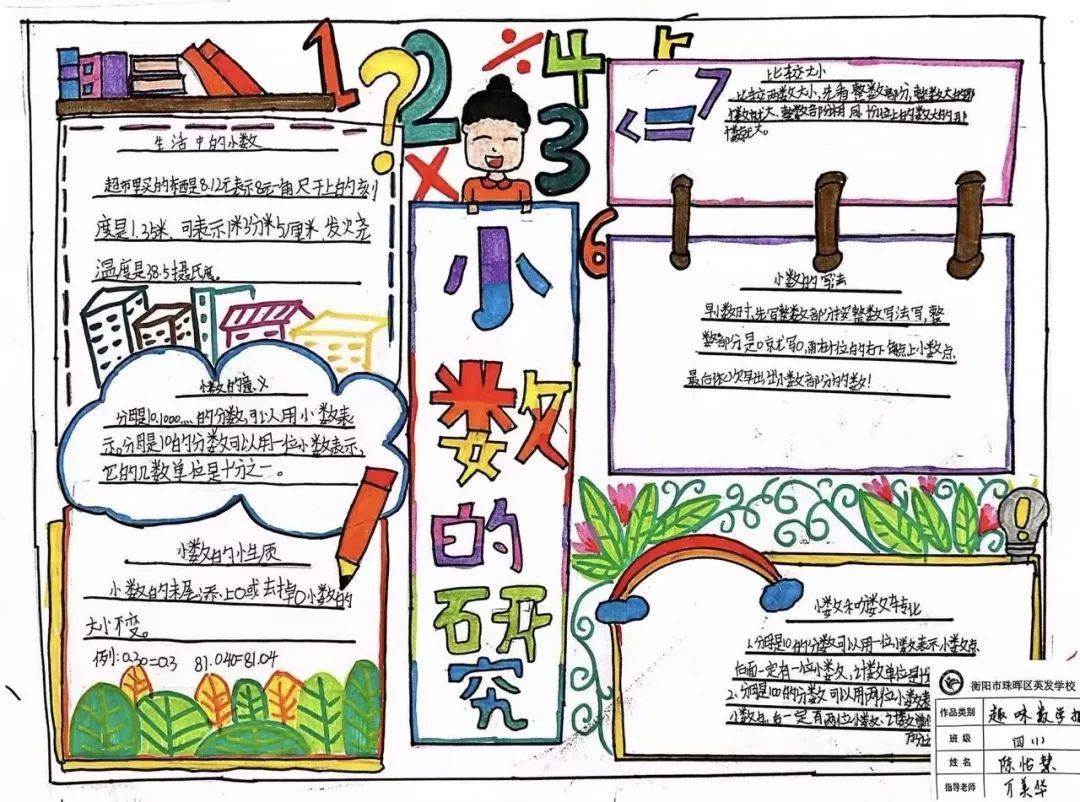 1 ? 2 ÷ 4 5
× 3 6
小数的研究
生活中的小数
超市里买的东西是8.12元表示8元一角尺子上的刻
度是1.35米、可表示1米3分米5厘米，发火烧
温度是38.5摄氏度。
小数的意义
分母是10.1000……的分数，可以用小数表
示。分母是10的分数可以用一位小数表示，
它的几数单位是十分之一。
小数的小性质
小数的末尾添上0或去掉0小数的
大小不变。
例:0.30=0.3 81.040=81.04
< = 7
比较大小
比较两数大小，先看整数部分，整数大的那
个数就大、整数部分相同，十份位上的数大的那
个数就大。
小数的写法
写小数时，先写整数部分按整数写法写，整
数部分是0就写0，再在个位的右下角点上小数点
最后依次写出出小数部分的数！
小数和分数互转化
1.分母是10的分数可以用一位小数表示小数点
右面一定有一位小数，计数单位是十
2.分母是100的分数可以用两位小数表
小数点右一定有两位小数、计数单位
百分之
衡阳市珠晖区英发学校
作品类别 趣味数学
班级 四11
姓名 陈怡慧
指导老师 万美华